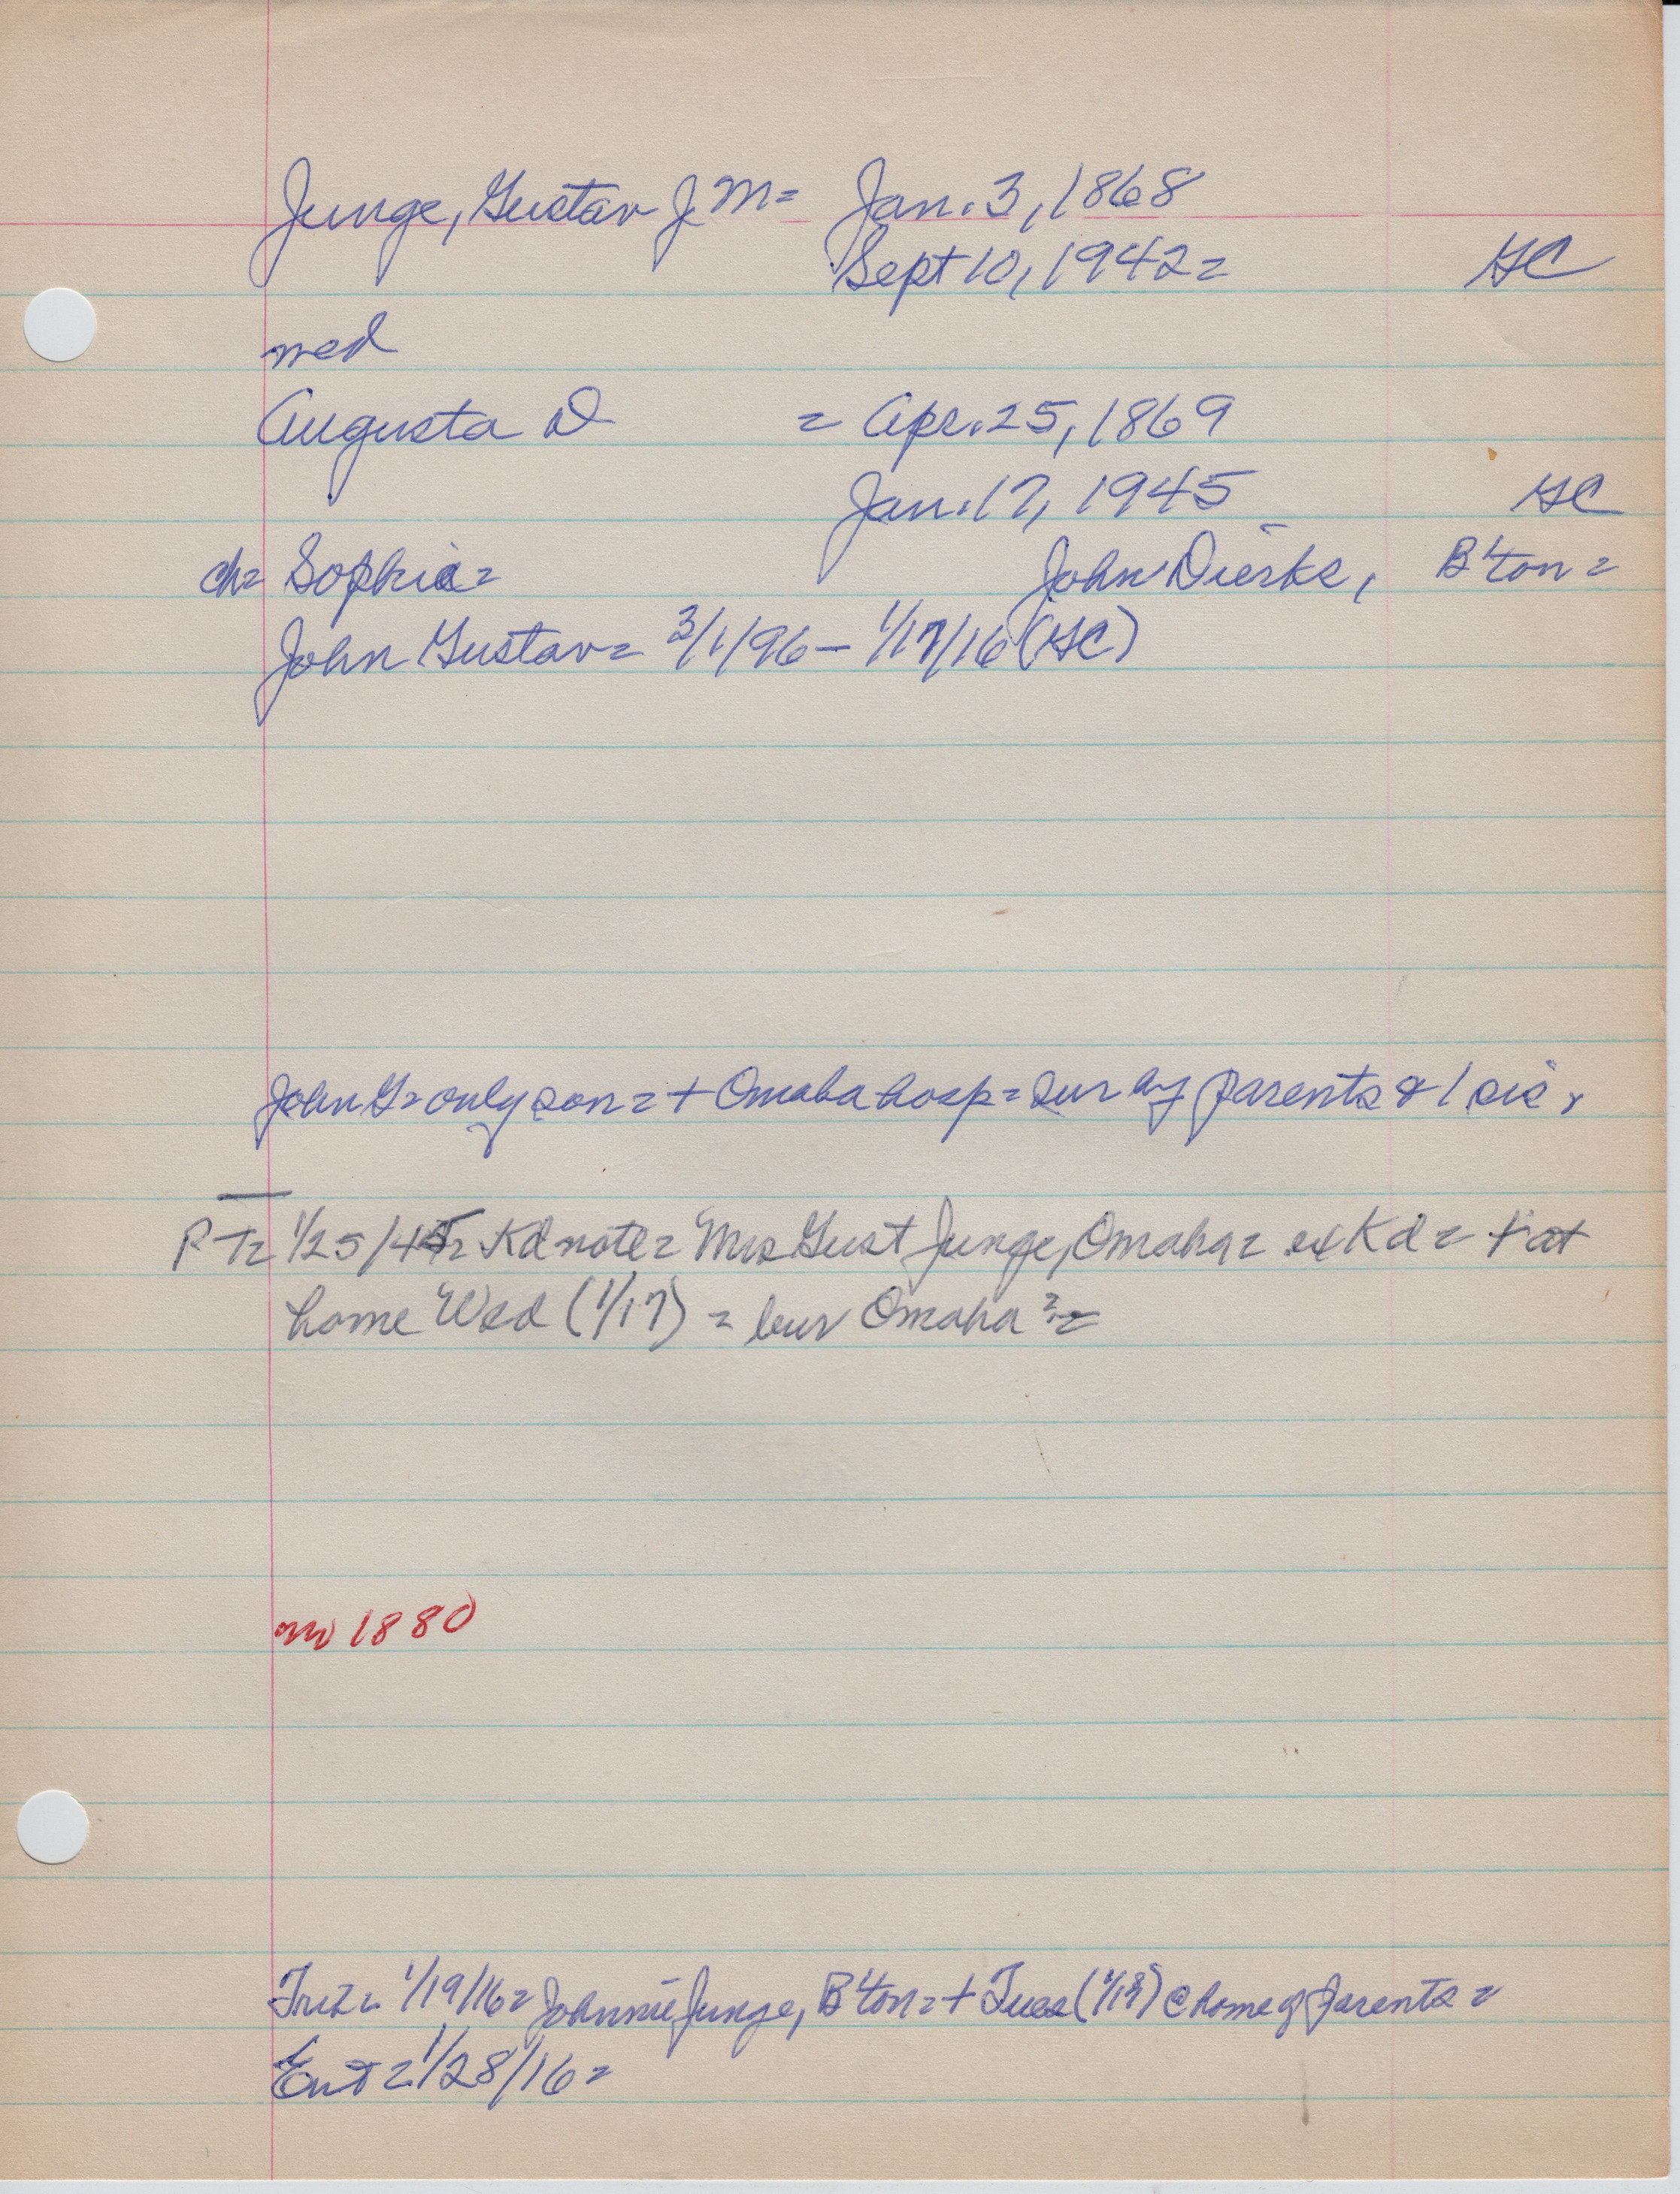 Junge, Gustav J M = Jan. 3, 1868
Sept 10, 1942 = GC
med
Augusta D = Apr. 25, 1869
Jan. 17, 1945 GC
ch = Sophia = John Dierks, B'ton =
John Gustav = 3/1/96 – 1/17/16 (GC)
John G = only son = + Omaha hosp = sur by parents & 1 sis.
PT = 1/25/45 = Kd note = Mrs Gust Junge, Omaha = ex Kd = + at
home Wed (1/17) = bur Omaha ? =
no 1880
1/19/16 = Johnnie Junge, B'ton = + Tues (1/18) @ home of parents =
Ent = 1/28/16 =